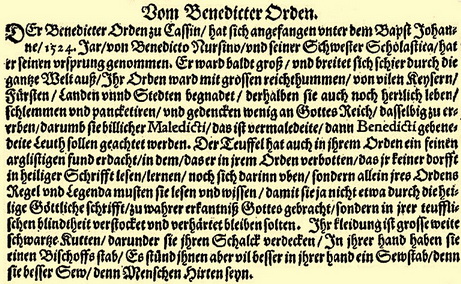 Vom Benedicter Orden.
DEr Benedicter Orden zu Cassin/ hat sich angefangen vnter dem Bapst Johan-
ne/ 1524. Jar/ von Benedicto Nursino/ vnd seiner Schwester Scholastica/ hat
er seinen vrsprung genommen. Er ward baldt groß/ vnd breitet sich schier durch die
gantze Welt auß/ Ihr Orden ward mit grossen reichthummen/ von vilen Keysern/
Fürsten/ Landen vnnd Stedten begnadet/ derhalben sie auch noch herrlich leben/
schlemmen vnd pancketiren/ vnd gedencken wenig an Gottes Reich/ dasselbig zu er-
erben/ darumb sie billicher Maledicti/ das ist vermaledeite/ dann Benedicti gebene-
deite Leuth sollen geachtet werden. Der Teuffel hat auch in ihrem Orden ein feinen
arglistigen fund erdacht/ in dem/ das er in jrem Orden verbotten/ das jr keiner dorffte
in heiliger Schrifft lesen/ lernen/ noch sich darinn vben/ sondern allein jres Ordens
Regel vnd Legenda musten sie lesen vnd wissen/ damit sie ja nicht etwa durch die hei-
lige Göttliche schrifft/ zu wahrer erkantniß Gottes gebracht/ sondern in jrer teuffli-
schen blindtheit verstocket vnd verhärtet bleiben solten. Ihr kleidung ist grosse weite
schwartze Kutten/ darunder sie jhren Schalck verdecken/ In jhrer hand haben sie
einen Bischoffs stab/ Es stünd jhnen aber vil besser in jhrer hand ein Sewstab/ denn
sie besser Sew/ denn Menschen Hirten seyn.